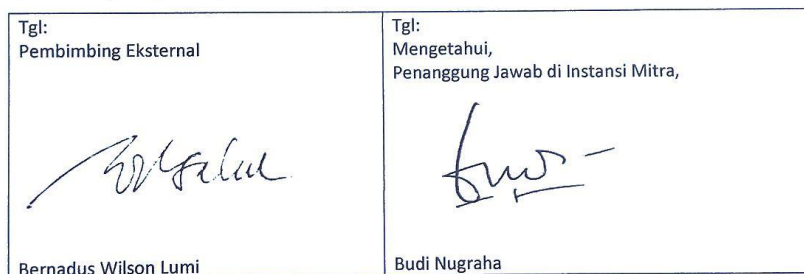 Tgl:
Pembimbing Eksternal
Bernadus Wilson Lumi
Tgl:
Mengetahui,
Penanggung Jawab di Instansi Mitra,
Budi Nugraha